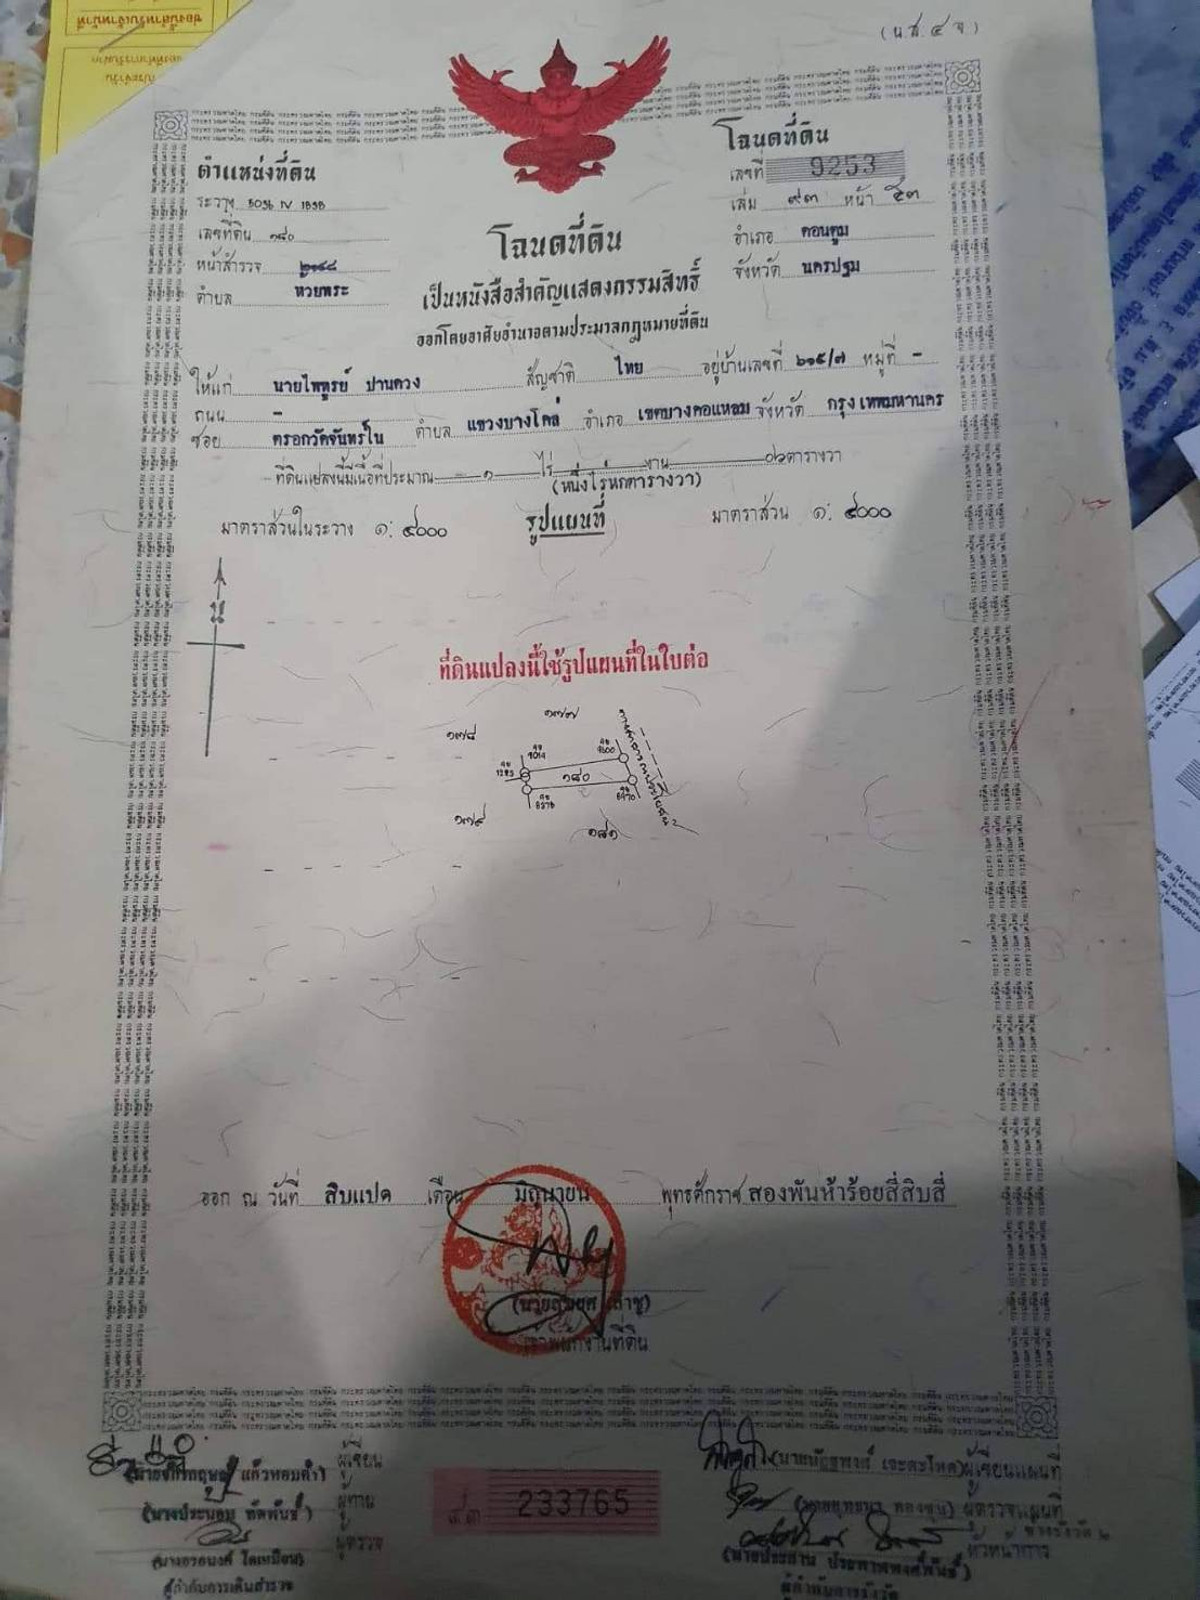 (น.ส. ๔ จ.)
ตำแหน่งที่ดิน
ระวาง 5036 IV
เลขที่ดิน ๑๘๐
หน้าสำรวจ
ตำบล ห้วยพระ
โฉนดที่ดิน
เลขที่ 9253
เล่ม ๙๓ หน้า ๕๓
อำเภอ ดอนตูม
จังหวัด นครปฐม
โฉนดที่ดิน
เป็นหนังสือสำคัญแสดงกรรมสิทธิ์
ออกโดยอาศัยอำนาจตามประมวลกฎหมายที่ดิน
ให้แก่ นายไพฑูรย์ ปานดวง สัญชาติ ไทย อยู่บ้านเลขที่ ๖๑๕/๗ หมู่ที่ -
ถนน -
ซอย ตรอกวัดจันทร์ใน ตำบล แขวงบางโคล่ อำเภอ เขตบางคอแหลม จังหวัด กรุงเทพมหานคร
ที่ดินแปลงนี้มีเนื้อที่ประมาณ ๑ ไร่ - งาน ๐๖ ตารางวา
(หนึ่งไร่หกตารางวา)
มาตราส่วนในระวาง ๑: ๔๐๐๐ รูปแผนที่ มาตราส่วน ๑: ๔๐๐๐
น
ที่ดินแปลงนี้ใช้รูปแผนที่ในใบต่อ
๑๗๗
๑๗๘
๑๘๐
๑๗๙
๑๘๑
ออก ณ วันที่ สิบแปด เดือน มิถุนายน พุทธศักราช สองพันห้าร้อยสี่สิบสี่
เจ้าพนักงานที่ดิน
แก้วหอมคำ) ผู้เขียน
(นางประนอม ทัดพันธ์) ผู้ทาน
ผู้ตรวจ
(นางอรอนงค์ โตเหมือน)
ผู้กำกับการเดินสำรวจ
233765
ผู้เขียนแผนที่
ผู้ตรวจแผนที่
ช่างรังวัด ๒
หัวหน้าการ
ผู้กำกับการรังวัด